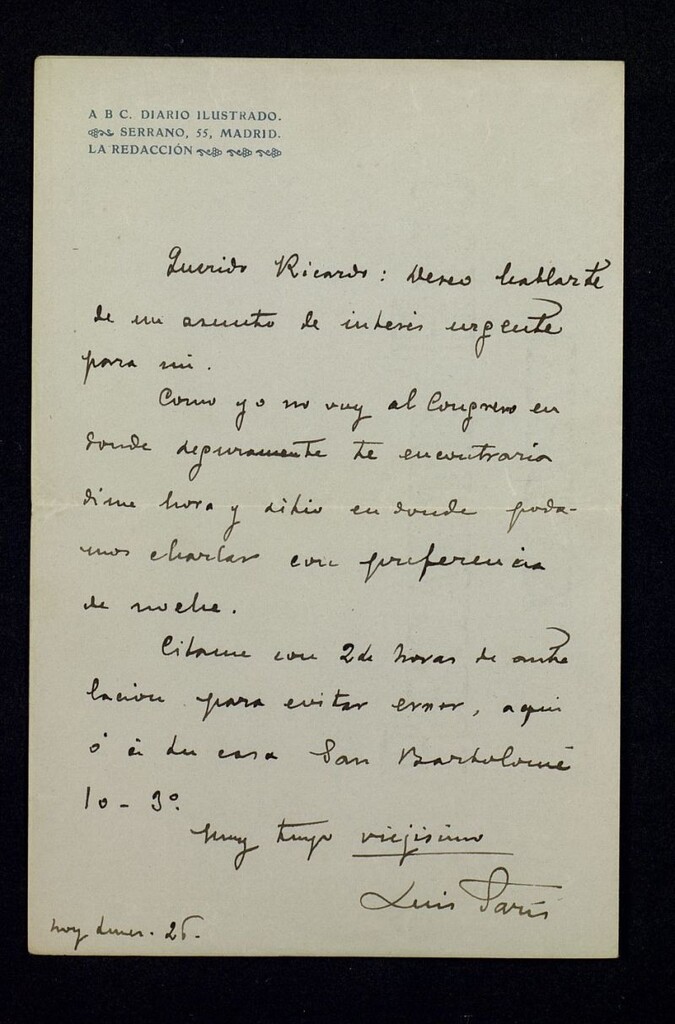 A B C. DIARIO ILUSTRADO.
SERRANO, 55, MADRID.
LA REDACCIÓN
Querido Ricardo: Deseo hablarte
de un asunto de interés urgente
para mi.
Como yo no voy al Congreso en
donde seguramente te encontraria
dime hora y sitio en donde poda-
mos charlar con preferencia
de noche.
Citame con 24 horas de ante
lacion para evitar error, aqui
ó á tu casa San Bartolomé
10 - 3º.
Muy tuyo viejisimo
Luis París
hoy Lunes. 26.